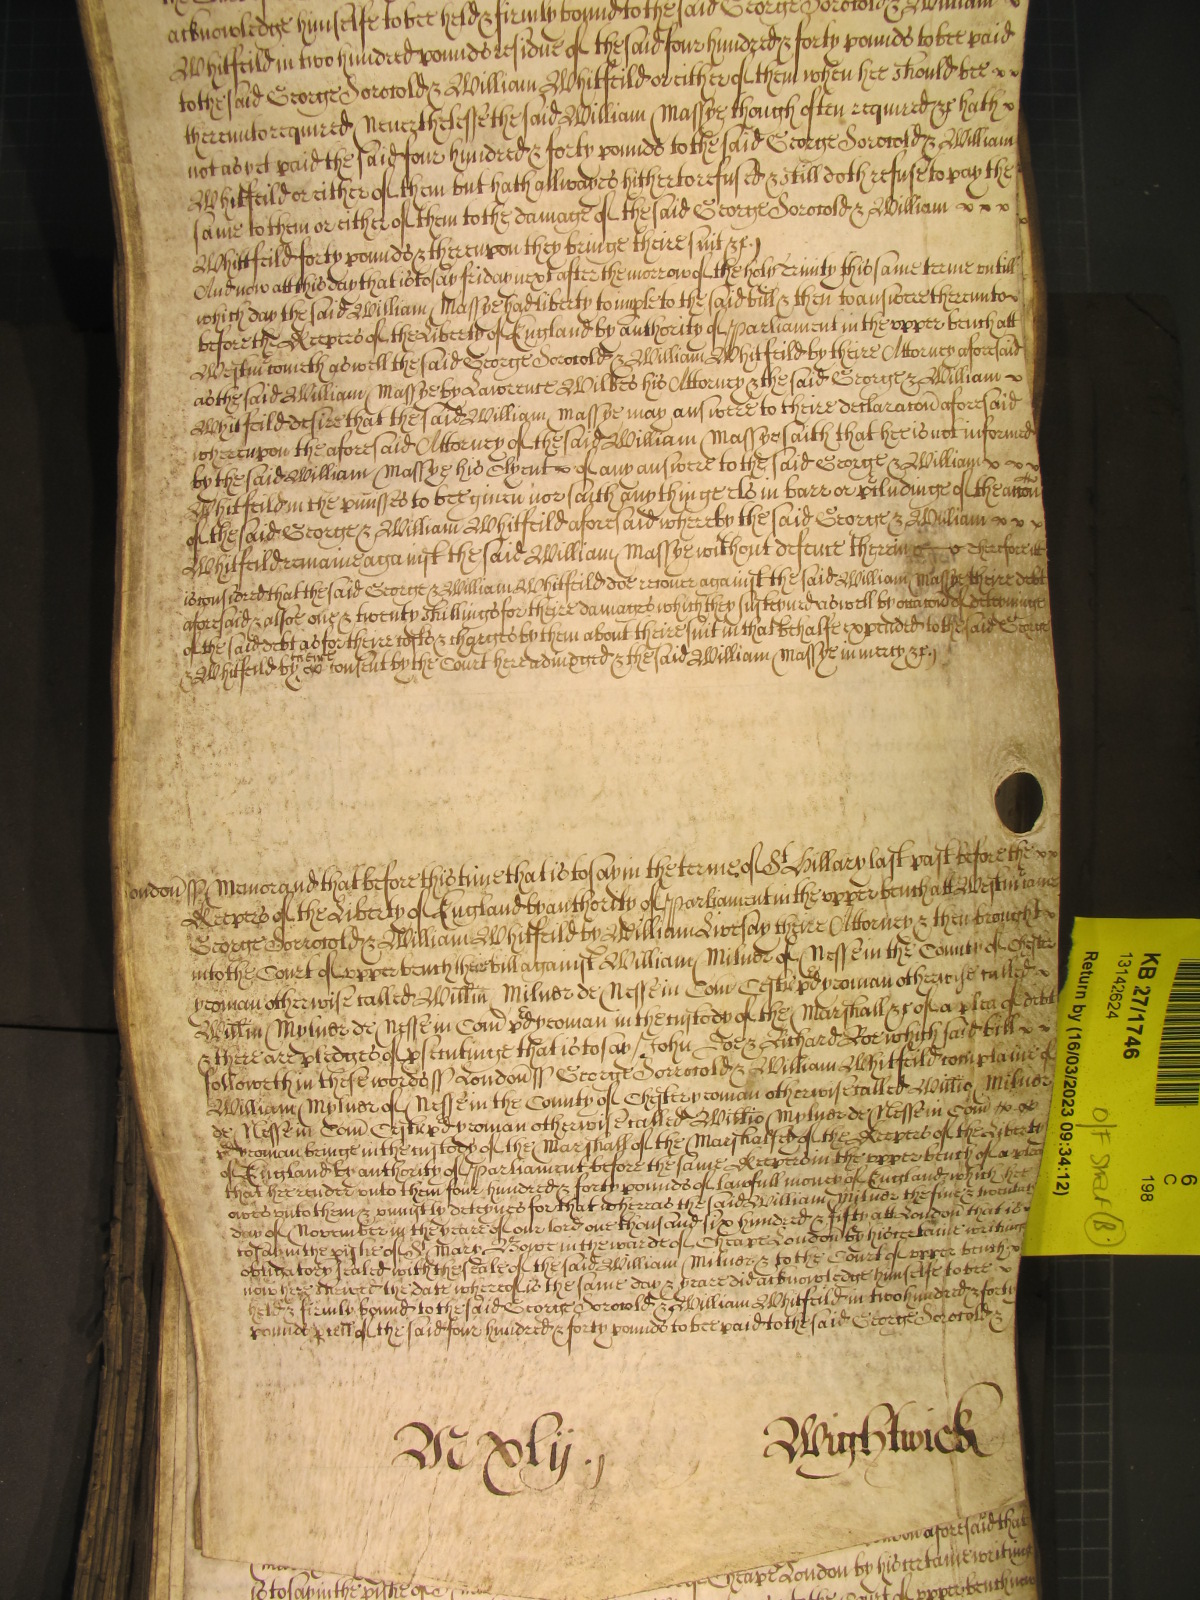 acknowledge himselfe to bee held & firmly bound to the said George Sorocold & William
Whitfeild in two hundred pounds residue of the said four hundred & forty pounds to bee paid
to the said George Sorocold & William Whitfeild or either of them when hee should bee
thereunto required Neverthelesse the said William Massye though often required &c hath
not as yet paid the said four hundred & forty pounds to the said George Sorocold & William
Whitfeild or either of them but hath allwayes hitherto refused & still doth refuse to pay the
same to them or either of them to the damage of the said George Sorocold & William
Whitfeild forty pounds & thereupon they bringe theire suit &c.
And now att this day that is to say friday next after the morrow of the holy Trinity this same terme untill
which day the said William Massye had liberty to imple to the said bill & then to answere thereunto
before the Keepers of the Liberty of England by authority of Parliament in the upper bench att
Westm cometh as well the said George Sorocold & William Whitfeild by theire Attorney aforesaid
as the said William Massye by Lawrence Wilkes his Attorney & the said George & William
Whitfeild desire that the said William Massye may answere to theire declaracon aforesaid
whereupon the aforesaid Attorney of the said William Massye saith that hee is not informed
by the said William Massye his Clyent of any answere to the said George & William
Whitfeild in the pmisses to bee given nor saith any thing els in barr or pcludinge of the accon
of the said George & William Whitfeild aforesaid whereby the said George & William
Whitfeild remaine against the said William Massye without defence therein Therefore itt
is considered that the said George & William Whitfeild doe recover against the said William Massye theire debt
aforesaid & alsoe one & twenty shillings for theire damages which they susteyned as well by occacon of deteininge
of the said debt as for theire costs & charges by them about theire suit in that behalfe expended to the said George
& Whitfeild by theire consent by the Court here adiudged & the said William Massye in mercy &c.
London ss Memorand that before this time that is to say in the terme of St Hillary last past before the
Keepers of the Liberty of England by authority of Parliament in the upper bench att Westm came
George Sorrocold & William Whitfeild by William Livesay theire Attorney & then brought
into the Court of upper bench their bill against William Milner of Nesse in the County of Chester
yeoman otherwise called Willm Milner de Nesse in Com Cestr pd yeoman otherwise called
Willm Mylner de Nesse in Com pd yeoman in the custody of the Marshall &c of a plea of debt
& there are pledges of psecutinge that is to say John Doe & Richard Roe which said bill
followeth in these words ss London ss George Sorrocold & William Whitfeild complaine of
William Mylner of Nesse in the County of Chester yeoman otherwise called Willm Milner
de Nesse in Com Cestr pd yeoman otherwise called Willm Mylner de Nesse in Com
pd yeoman beinge in the custody of the Marshall of the Marshalsea of the Keepers of the Liberty
of England by authority of Parliament before the same Keepers in the upper bench of a plea
that hee render unto them four hundred & forty pounds of lawfull money of England which hee
owes unto them & uniustly deteynes for that whereas the said William Milner the five & twentieth
day of November in the yeare of our lord one thousand six hundred & fifty att London that is
to say in the pishe of St Mary Bowe in the warde of Cheape London by his certaine writinge
obligatory sealed with the seale of the said William Milner & to the Court of upper bench
now here shewed the date whereof is the same day & yeare did acknowledge himselfe to bee
held & firmly bound to the said George Sorocold & William Whitfeild in two hundred & forty
pounds pcell of the said four hundred & forty pounds to bee paid to the said George Sorocold &
M xlij.
Wightwick
aforesaid that
Cheape London by his certaine writinge
is to say in the pishe of
to the Court of upper bench now
KB 27/1746
13142624
Return by (16/03/2023 09:34:12)
6
C
198